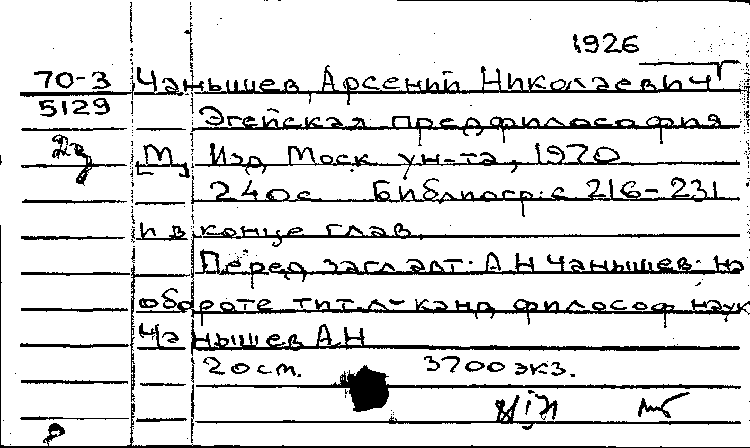 1926
70-3 Чанышев, Арсений Николаевич
5129 Эгейская предфилософия
Дз [М] Изд Моск ун-та, 1970
240с Библиогр: с 216-231
и в конце глав.
Перед загл авт: А Н Чанышев. на
обороте тит. л - канд философ наук
Чанышев А Н
20 см. 3700 экз.
8/I 71